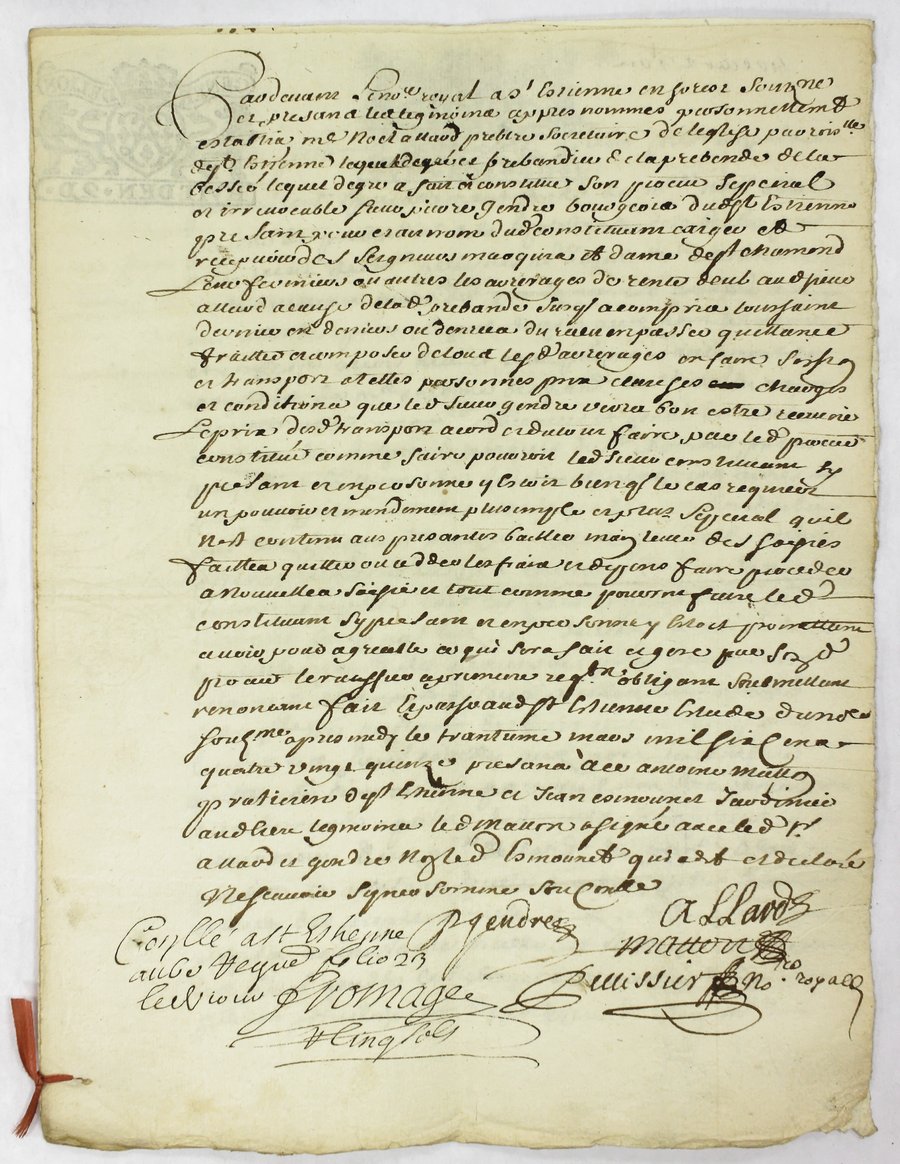 Pardevant le no.re royal a st Estienne en forest soubzne
et presans les tesmoins appres nommés personnellement
establi me Noel allard prebtre secretaire de leglise parroissielle
de st Estienne lequel degré et prebandier de la prebende de la
lequel degré a fait et constitué son procur speceial
et irrevocable sieur pierre gendre bourgeois dudt st Estienne
presant pour et au nom dud constituant exiger et
recepvoir des seigneurs marquis et dame de st chamond
leurs fermiers ou autres les arrerages de rente deub aud sieur
allard a cause de lad prebande jusques a compris toussaint
dernier en deniers ou denrees du receu en passer quittance
traitter et composer de tous lesd arrerages en faire
et transport a telles personnes prix clauses charges
et conditions que led sieur gendre verra bon estre recevoir
le prix desd transport acorder et du tout faire par led procur
constitué comme faire pouvoit led sieur constituant sy
presant et en personne y estoit bien qu le cas requiere
un pouvoir et mandement plus ample et plus speceial quil
nest contenu aux presantes bailler main levée des saisies
faittes quitter ou ceder les frais et despens faire proceder
a nouvelles saisies et tout comme pourroit faire led
constituant sy presant et en personne y estoit promettant
avoir pour agreable ce qui sera fait et geré par sond
procur le rattifier a premiere reqon obligeant soubmettant
renonceant fait et passé aud st Estienne estude dud no.re
soubzne apres midy le trantieme mars mil six cens
quatre vingt quinze presans a ce antoine matton
praticien de st Estienne et Jean esmounet Jardinier
aud lieu tesmoins led matton a signé avec led sr
allard et gendre non led Esmounet qui a dt et declaré
ne scavoir signer sommé
Conllé a st Estienne
P gendre
aLLard
au 60 Regre folio 23
matton
Pellissier no.re royall
Fromage
R Cinq sols